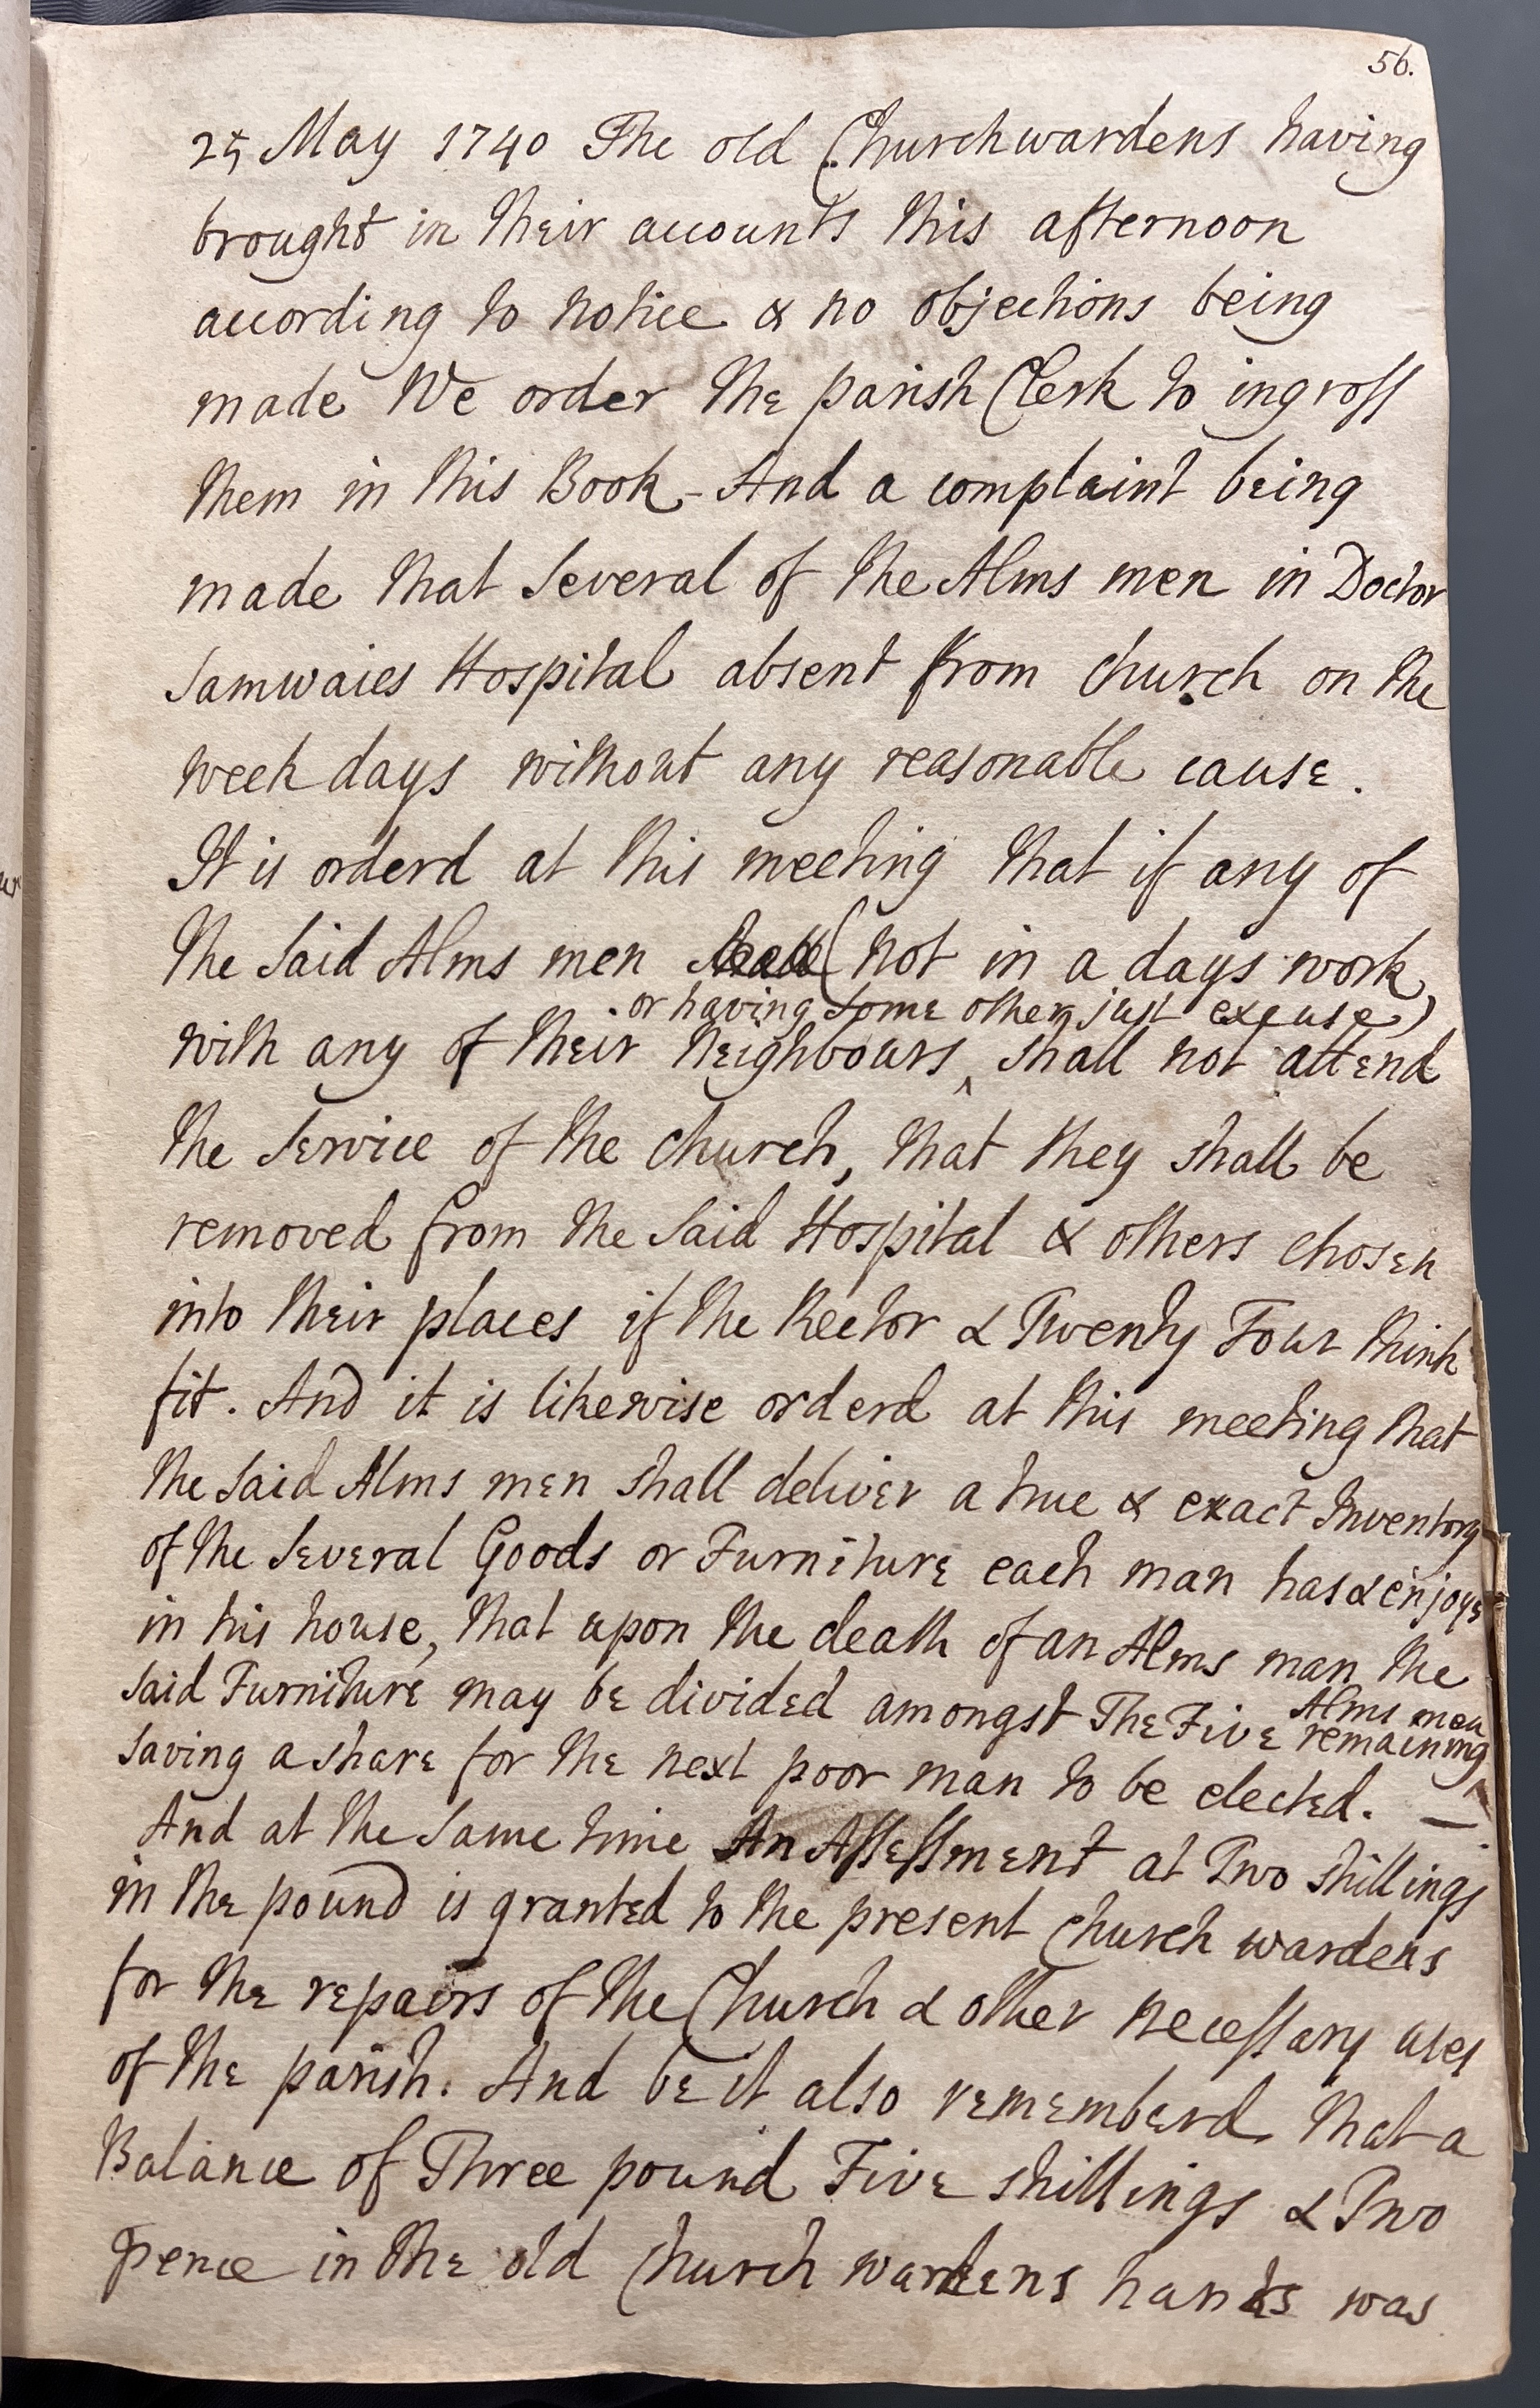 56.
25 May 1740 The old Churchwardens having
brought in their accounts this afternoon
according to notice & no objections being
made We order the parish Clerk to ingross
them in this Book - And a complaint being
made that Several of the Alms men in Doctor
Samwaies Hospital absent from church on the
week days without any reasonable cause.
It is orderd at this meeting that if any of
the Said Alms men (not in a days work
or having some other just excuse)
with any of their neighbours, shall not attend
the Service of the church, that they shall be
removed from the Said Hospital & others chosen
into their places if the Rector & Twenty Four think
fit. And it is likewise orderd at this meeting that
the Said Alms men shall deliver a true & exact Inventory
of the Several Goods or Furniture each man has & enjoys
in his house, that upon the death of an Alms man the
Alms men
said Furniture may be divided amongst The Five remaining
saving a share for the next poor man to be elected. —
And at the Same time An Assessment at Two shillings
in the pound is granted to the present Church wardens
for the repairs of the Church & other necessary uses
of the parish. And be it also rememberd that a
Balance of Three pound Five shillings & Two
pence in the old Church wardens hands was